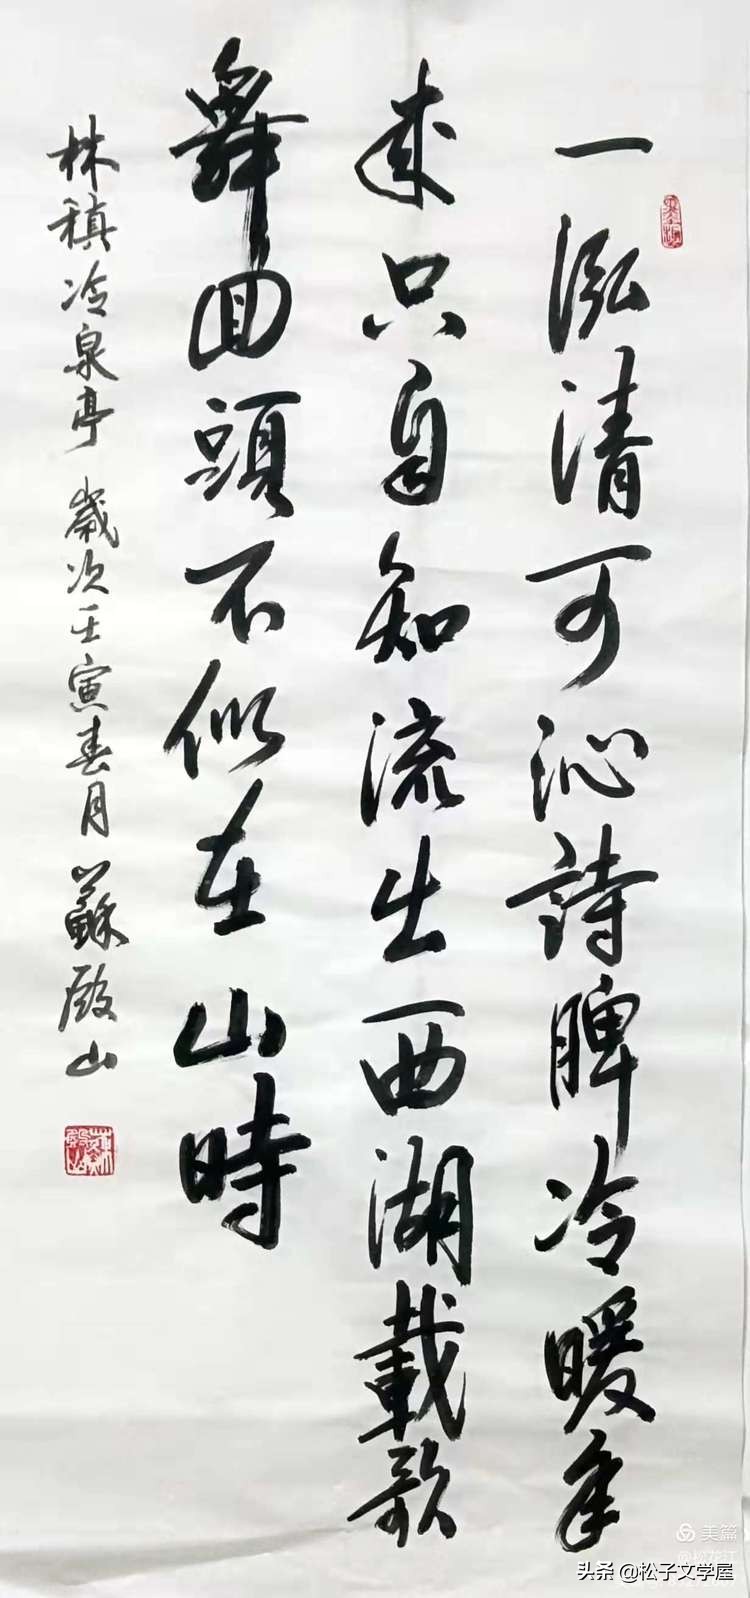 一泓清可沁詩脾冷暖年
来只自知流出西湖載歌
舞回頭不似在山時
林稹冷泉亭 歲次壬寅春月 蘇殿山
美篇
头条 @松子文学屋